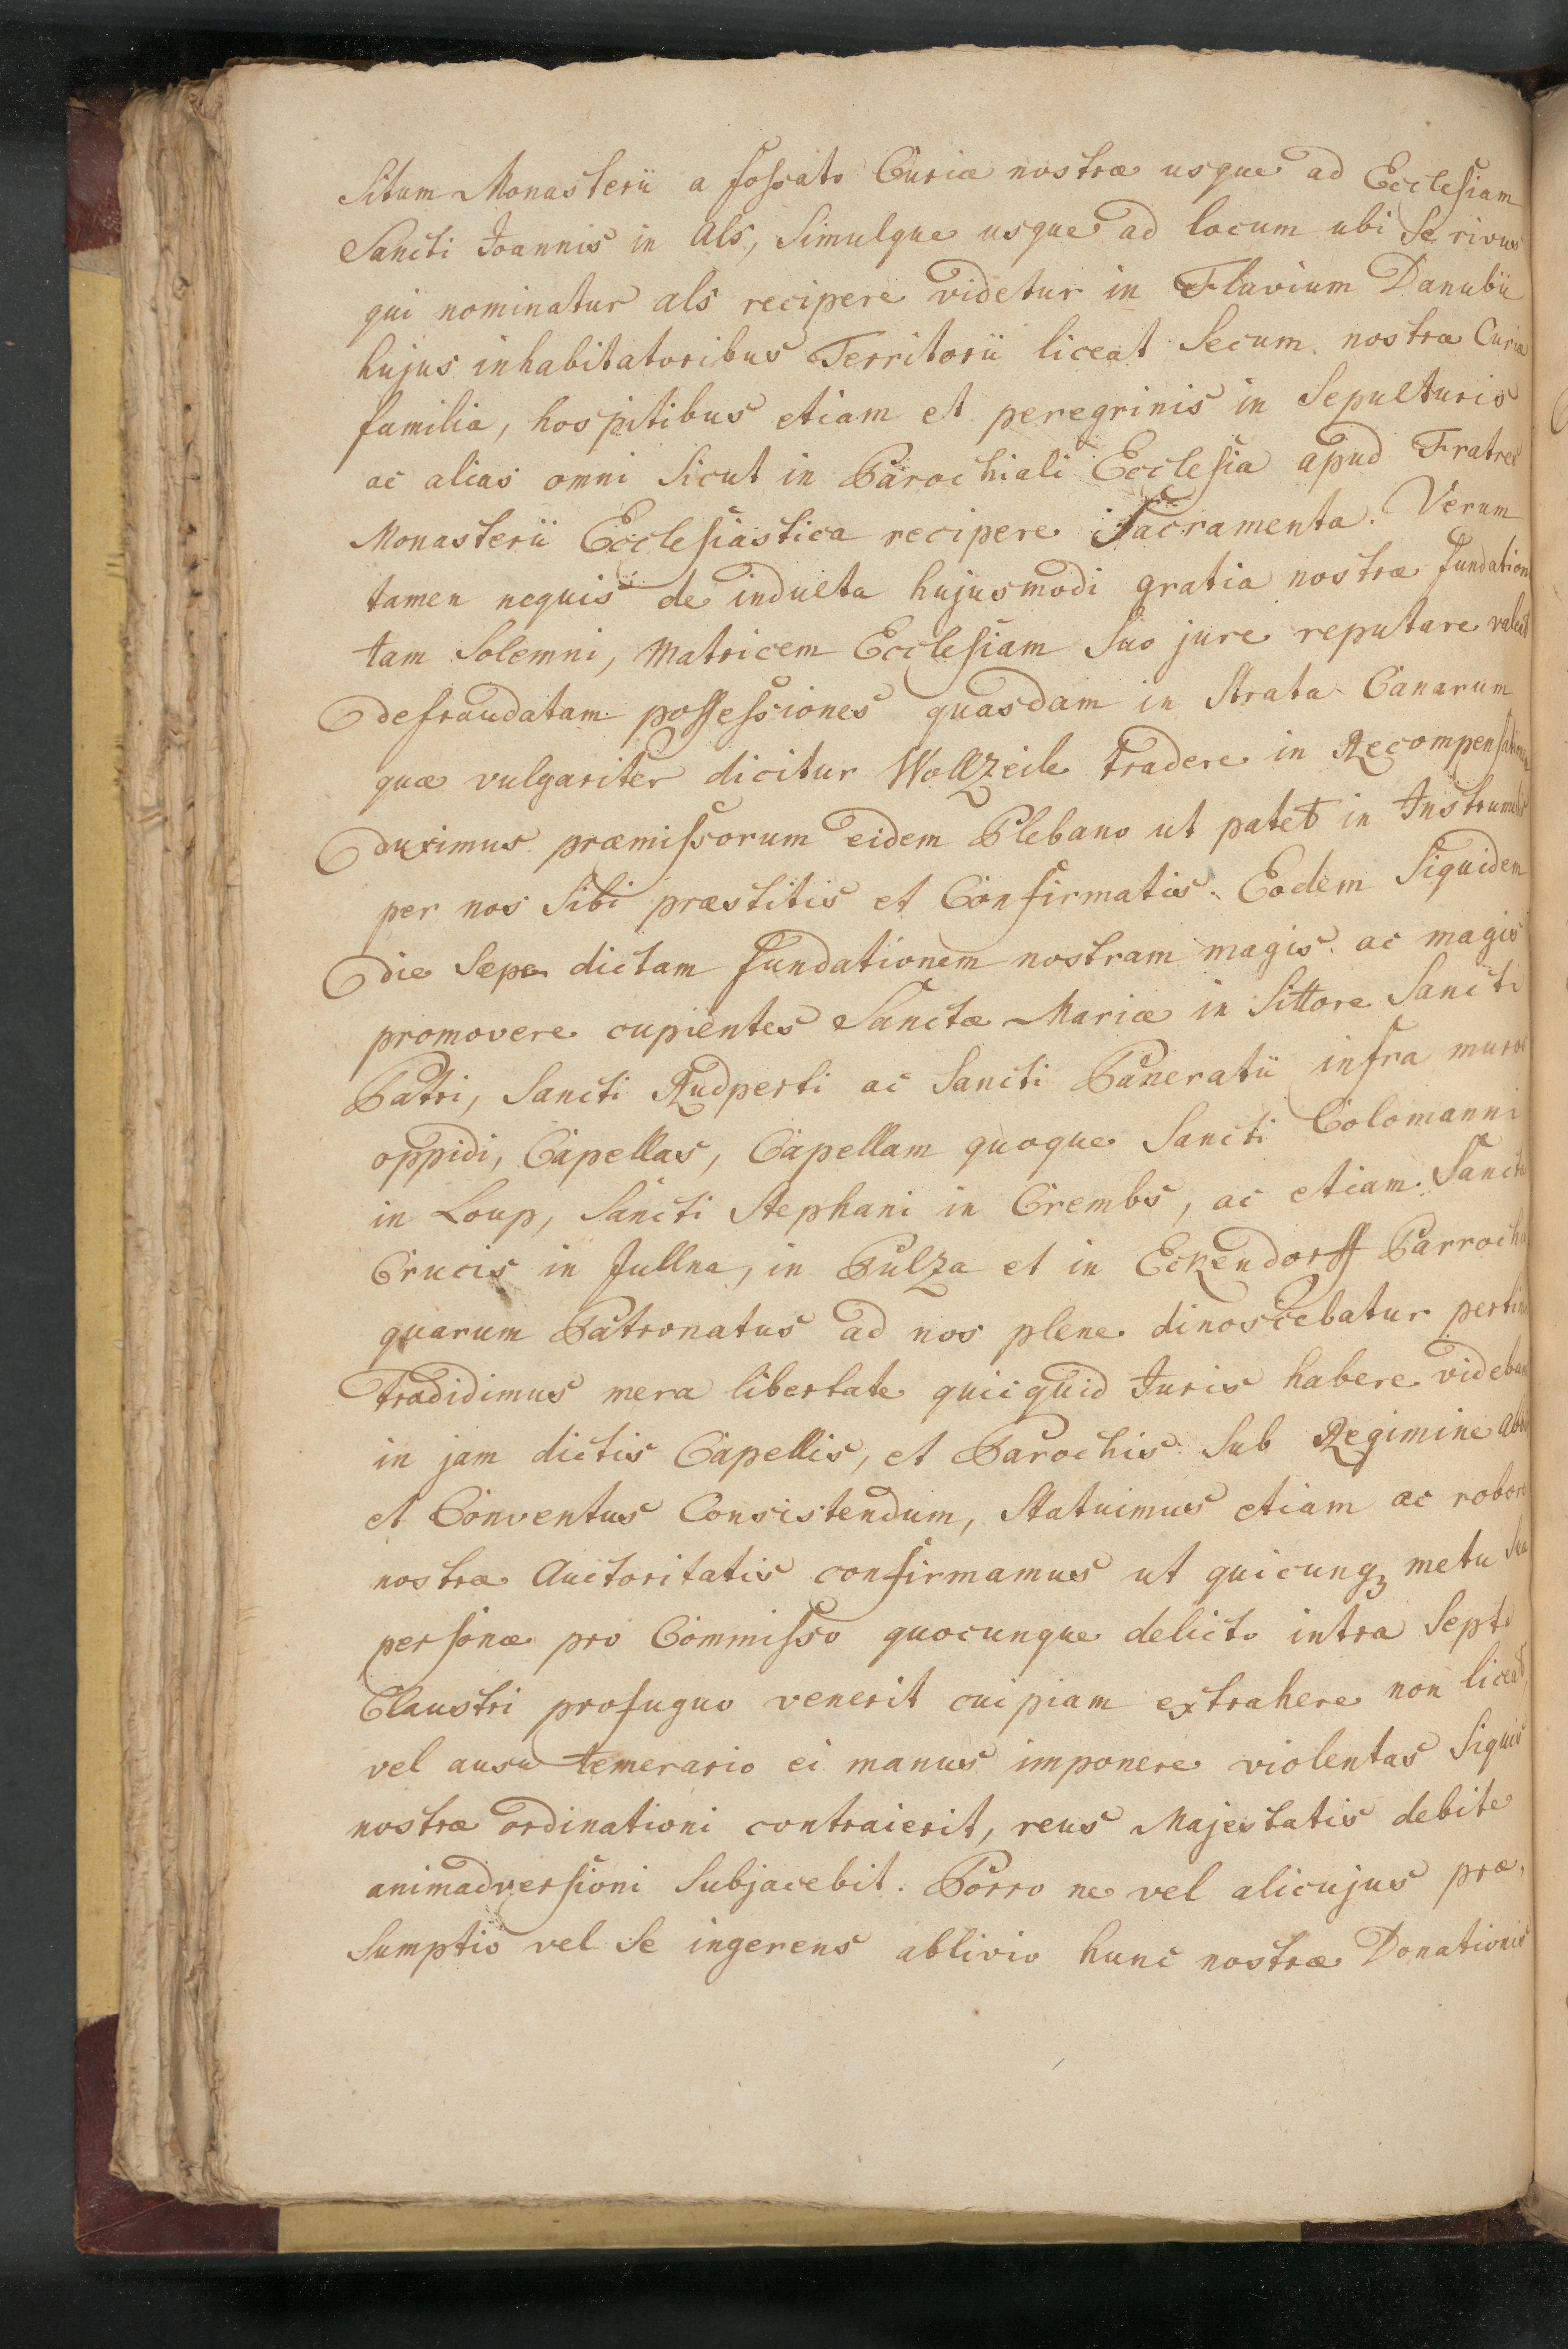 Situm Monasterii a fossato Curiæ nostræ usque ad Ecclesiam
Sancti Joannis in Als, Simulque usque ad locum ubi Se rivus
qui nominatur als recipere videtur in Fluvium Danubii
hujus inhabitatoribus Territorii liceat Secum nostræ Curiæ
familia, hospitibus etiam et peregrinis in Sepulturis
ac alias omni Sicut in Parochiali Ecclesia apud Fratres
Monasterii Ecclesiastica recipere Sacramenta. Verum
tamen nequis de indulta hujusmodi gratia nostræ fundation
tam Solemni, Matricem Ecclesiam Suo jure reputare valeat
defraudatam possessiones quasdam in Strata Canarum
quæ vulgariter dicitur Wollzeile tradere in
duximus præmissorum eidem Plebano ut patet in
per nos Sibi præstitis et Confirmatis. Eodem Siquidem
die Sæpe dictam fundationem nostram magis ac magis
promovere cupientes Sanctæ Mariæ in Littore Sancti
Patri, Sancti Rudperti ac Sancti Paneratii infra muros
oppidi, Capellas, Capellam quoque Sancti Colomanni
in Loup, Sancti Stephani in Crembs, ac etiam Sanctæ
Crucis in Jullna, in Pulza et in Eckendorff Parrochia
quarum Patronatus ad nos plene dinoscebatur pertin
tradidimus mera libertate quicquid Juris habere videba
in jam dictis Capellis, et Parochis Sub Regimine Abb
et Conventus Consistendum, Statuimus etiam ac robore
nostræ Auctoritatis confirmamus ut quicunq3 metu Suæ
personæ pro Commisso quocunque delicto intra Septa
Claustri profuguo venerit cuipiam extrahere non liceat,
vel ausu temerario ei manus imponere violentas Siquis
nostræ ordinationi contraierit, reus Majestatis debite
animadversioni Subjacebit. Porro ne vel alicujus præ,
Sumptio vel Se ingerens ablivio hunc nostræ Donationis